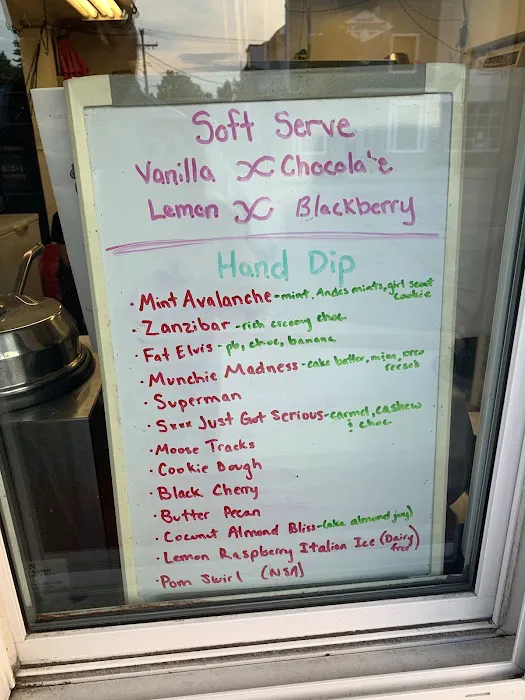 Soft Serve
Vanilla Chocolate
Lemon Blackberry
Hand Dip
• Mint Avalanche - mint, Andes mints, girl scout
cookie
• Zanzibar - rich creamy choc
• Fat Elvis - pb, choc, banana
• Munchie Madness - cake batter, m&m, oreo
reese's
• Superman
• Sxxx Just Got Serious - carmel, cashew
& choc
• Moose Tracks
• Cookie Dough
• Black Cherry
• Butter Pecan
• Coconut Almond Bliss - (aka almond joy)
• Lemon Raspberry Italian Ice (Dairy
free)
• Pom Swirl (NSA)